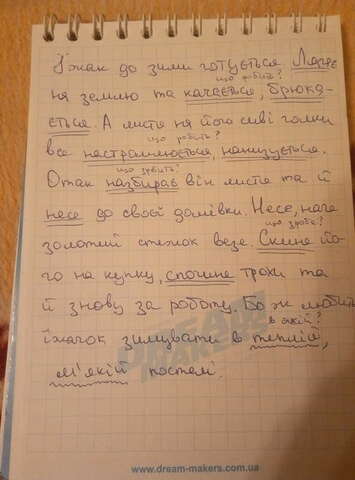 Їжак до зими готується. Ляже
що робить?
на землю та качається, брика-
ється. А листя на його сиві голки
що робить?
все настромлюється, нанизується.
що зробить?
Отак назбирає він листя та й
несе до своєї домівки. Несе, наче
що зробе?
золотий стіжок везе. Скине йо-
го на купку, спочине трохи та
й знову за роботу. Бо ж любить
в якій?
їжачок зимувати в теплій,
м'якій постелі.
DREAM
MAKERS
www.dream-makers.com.ua